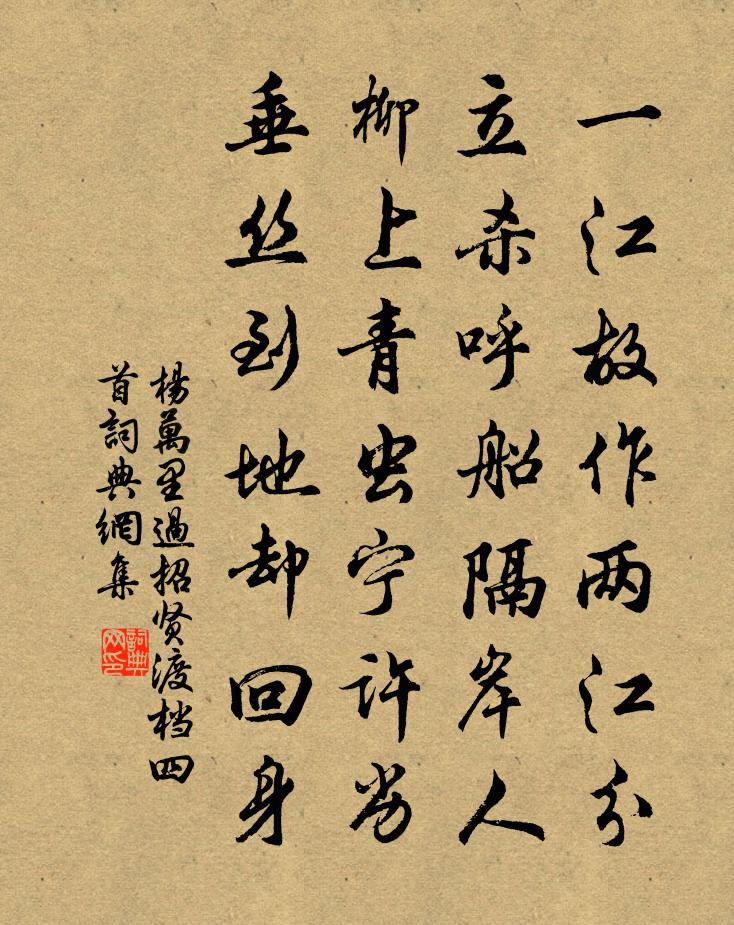 一江故作两江分
立杀呼船隔岸人
柳上青虫宁许劣
垂丝到地却回身
楊萬里過招贤渡档四
首詞典網集
詞典
网印